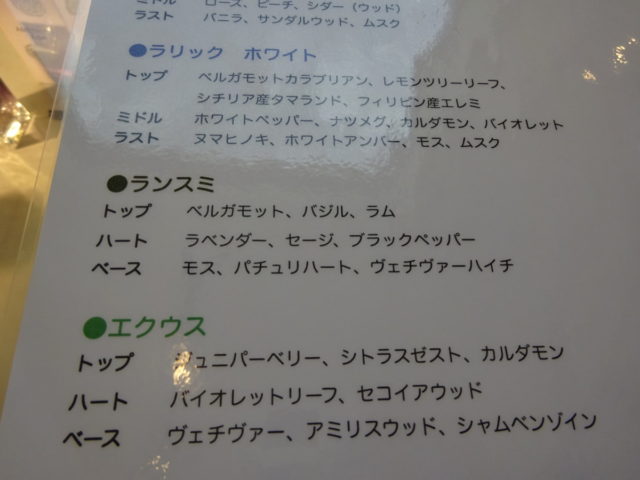 ミドル ローズ、ピーチ、シダー（ウッド）
ラスト バニラ、サンダルウッド、ムスク
●ラリック ホワイト
トップ ベルガモットカラブリアン、レモンツリーリーフ、
シチリア産タマランド、フィリピン産エレミ
ミドル ホワイトペッパー、ナツメグ、カルダモン、バイオレット
ラスト ヌマヒノキ、ホワイトアンバー、モス、ムスク
●ランスミ
トップ ベルガモット、バジル、ラム
ハート ラベンダー、セージ、ブラックペッパー
ベース モス、パチュリハート、ヴェチヴァーハイチ
●エクウス
トップ ジュニパーベリー、シトラスゼスト、カルダモン
ハート バイオレットリーフ、セコイアウッド
ベース ヴェチヴァー、アミリスウッド、シャムベンゾイン